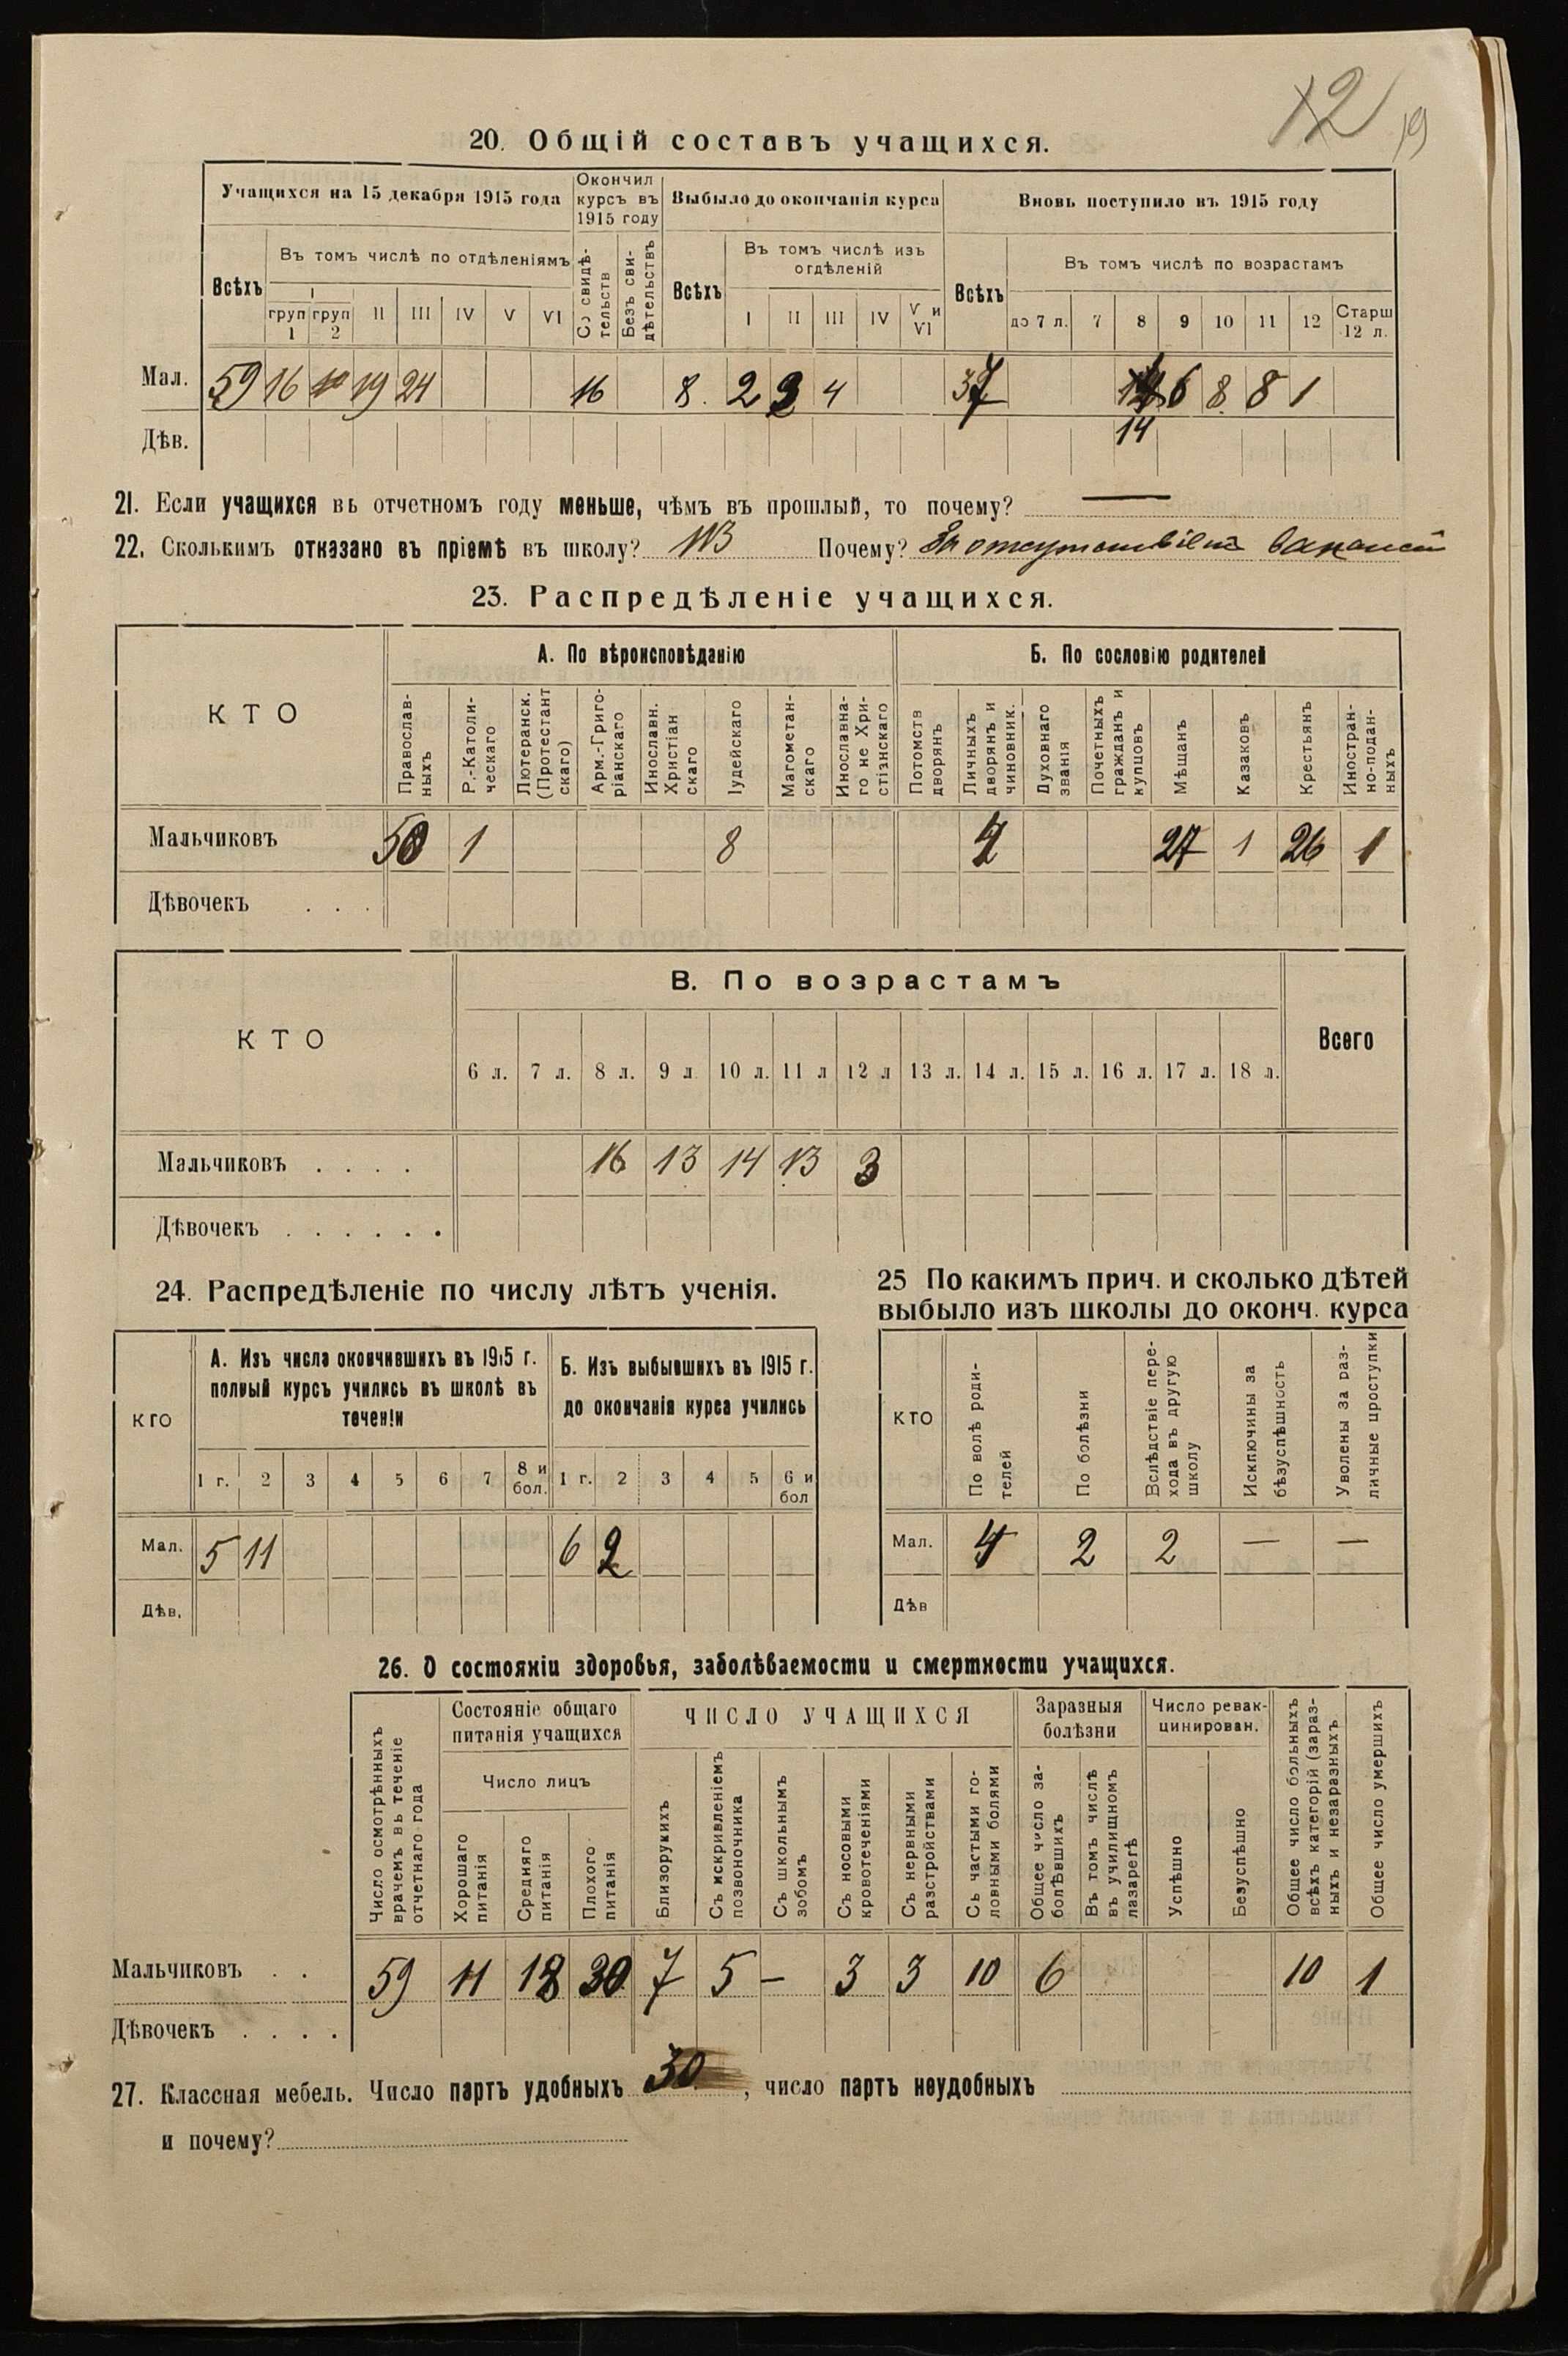 12 19
20. Общій составъ учащихся.
Учащихся на 15 декабря 1915 года | Окончил курсъ въ 1915 году | Выбыло до окончанія курса | Вновь поступило въ 1915 году
Всѣхъ | Въ томъ числѣ по отдѣленіямъ | Со свидѣтельств | Безъ свидѣтельствъ | Всѣхъ | Въ томъ числѣ изъ отдѣленій | Всѣхъ | Въ томъ числѣ по возрастамъ
I груп 1 | груп 2 | II | III | IV | V | VI | I | II | III | IV | V и VI | до 7 л. | 7 | 8 | 9 | 10 | 11 | 12 | Старш 12 л.
Мал. 59 16 19 24 16 8. 2 2 4 37 6 8 8 1
14
Дѣв.
21. Если учащихся въ отчетномъ году меньше, чѣмъ въ прошлый, то почему? —
22. Сколькимъ отказано въ пріемѣ въ школу? 113 Почему? За отсутствіемъ вакансій
23. Распредѣленіе учащихся.
КТО | А. По вѣроисповѣданію | Б. По сословію родителей
Православныхъ | Р.-Католическаго | Лютеранск. (Протестантскаго) | Арм.-Григоріанскаго | Инославн. Христіанскаго | Іудейскаго | Магометанскаго | Инославнаго не Христіанскаго | Потомств дворянъ | Личныхъ дворянъ и чиновник. | Духовнаго званія | Почетныхъ гражданъ и купцовъ | Мѣщанъ | Казаковъ | Крестьянъ | Иностранно-поданныхъ
Мальчиковъ 50 1 8 4 27 1 26 1
Дѣвочекъ . . .
КТО | В. По возрастамъ | Всего
6 л. | 7 л. | 8 л. | 9 л | 10 л. | 11 л | 12 л | 13 л. | 14 л. | 15 л. | 16 л. | 17 л. | 18 л.
Мальчиковъ . . . . 16 13 14 13 3
Дѣвочекъ . . . . . .
24. Распредѣленіе по числу лѣтъ ученія.
кто | А. Изъ числа окончившихъ въ 1915 г. полный курсъ учились въ школѣ въ теченіи | Б. Изъ выбывшихъ въ 1915 г. до окончанія курса учились
1 г. | 2 | 3 | 4 | 5 | 6 | 7 | 8 и бол. | 1 г. | 2 | 3 | 4 | 5 | 6 и бол
Мал. 5 11 6 2
Дѣв.
25 По какимъ прич. и сколько дѣтей
выбыло изъ школы до оконч. курса
кто | По волѣ родителей | По болѣзни | Вслѣдствіе перехода въ другую школу | Исключины за бѣзуспѣшность | Уволены за различные проступки
Мал. 4 2 2 — —
Дѣв
26. О состояніи здоровья, заболѣваемости и смертности учащихся.
Число осмотрѣнныхъ врачемъ въ теченіе отчетнаго года | Состояніе общаго питанія учащихся | ЧИСЛО УЧАЩИХСЯ | Заразныя болѣзни | Число ревакцинирован. | Общее число больныхъ всѣхъ категорій (заразныхъ и незаразныхъ | Общее число умершихъ
Число лицъ
Хорошаго питанія | Средняго питанія | Плохого питанія | Близорукихъ | Съ искривленіемъ позвоночника | Съ школьнымъ зобомъ | Съ носовыми кровотеченіями | Съ нервными разстройствами | Съ частыми головными болями | Общее число заболѣвшихъ | Въ томъ числѣ въ училищномъ лазаретѣ | Успѣшно | Безуспѣшно
Мальчиковъ . . 59 11 18 30 7 5 — 3 3 10 6 10 1
Дѣвочекъ . . . .
27. Классная мебель. Число партъ удобныхъ 30, число партъ неудобныхъ
и почему?